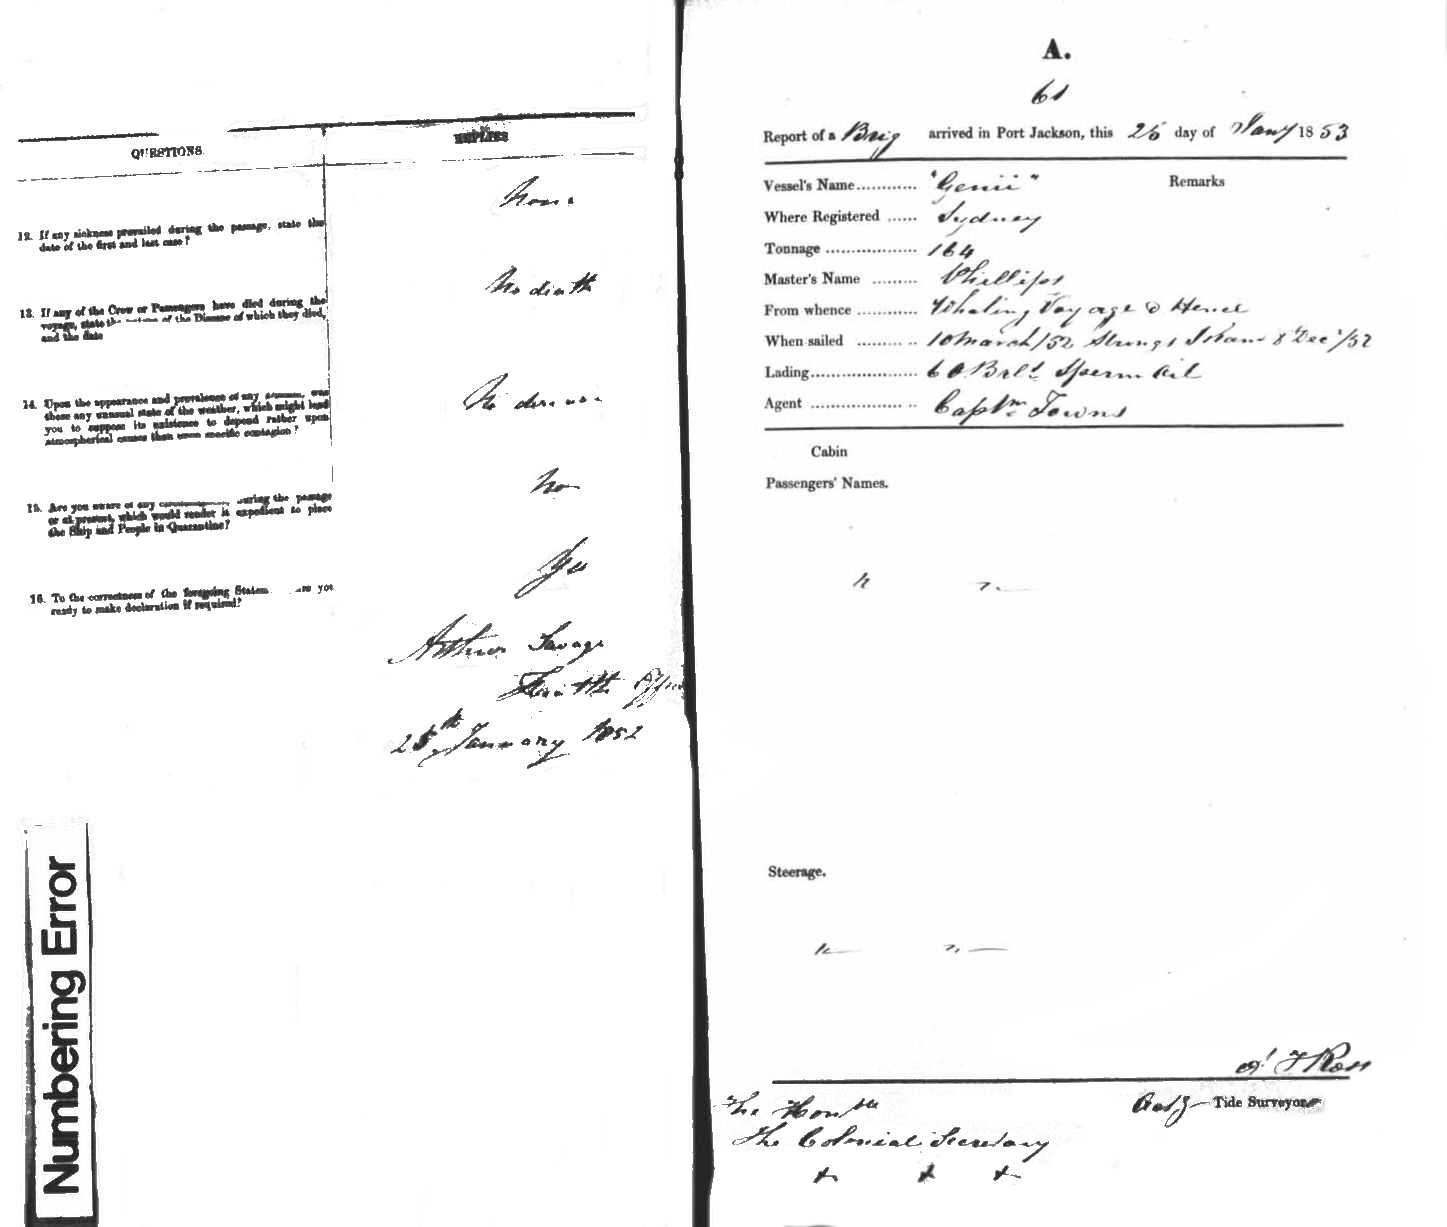 QUESTIONS.
REPLIES
12. If any sickness prevailed during the passage, state the
date of the first and last case?
None
13. If any of the Crew or Passengers have died during the
voyage, state the nature of the Disease of which they died,
and the date
No death
14. Upon the appearance and prevalence of any disease, was
there any unusual state of the weather, which might lead
you to suppose its existence to depend rather upon
atmospherical causes than upon specific contagion?
No disease
15. Are you aware of any during the passage
or at present, which would render it expedient to place
the Ship and People in Quarantine?
No
16. To the correctness of the foregoing Statem are you
ready to make declaration if required?
Yes
Arthur Savage
Health Officer
25th January 1852
Numbering Error
A.
61
Report of a Brig arrived in Port Jackson, this 25 day of Jany 1853
Vessel's Name............ "Genii" Remarks
Where Registered ...... Sydney
Tonnage .................. 164
Master's Name ......... Phillips
From whence ............ Whaling Voyage & Hence
When sailed ......... .. 10 March/52 Strongs Island 8 Dec'/52
Lading..................... 60 Brls Sperm Oil
Agent ................. .. Captn Towns
Cabin
Passengers' Names.
Steerage.
F Ross
Actg Tide Surveyor
The Honble
The Colonial Secretary